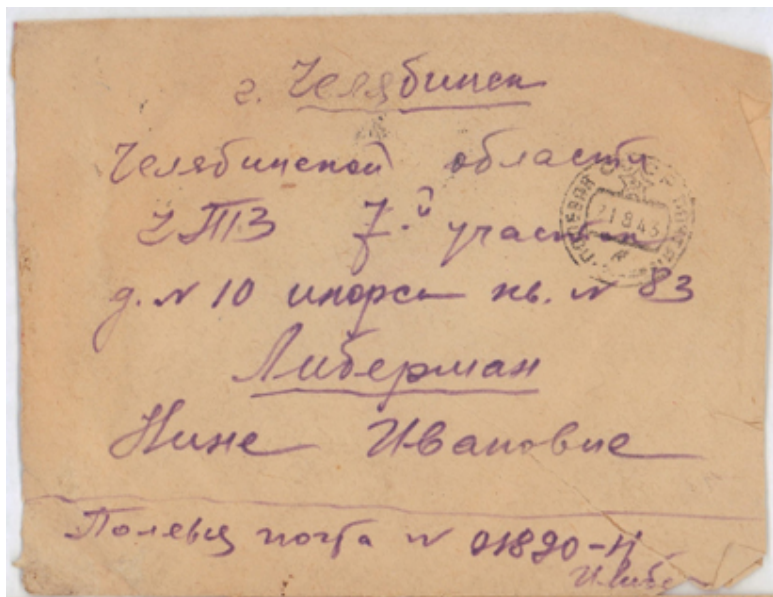 г. Челябинск
Челябинской области
ЧТЗ 7-й участок
д. № 10 кв. № 83
Либерман
Нине Ивановне
Полевая почта № 01890-И
СССР
ПОЛЕВАЯ ПОЧТА
21.8.43